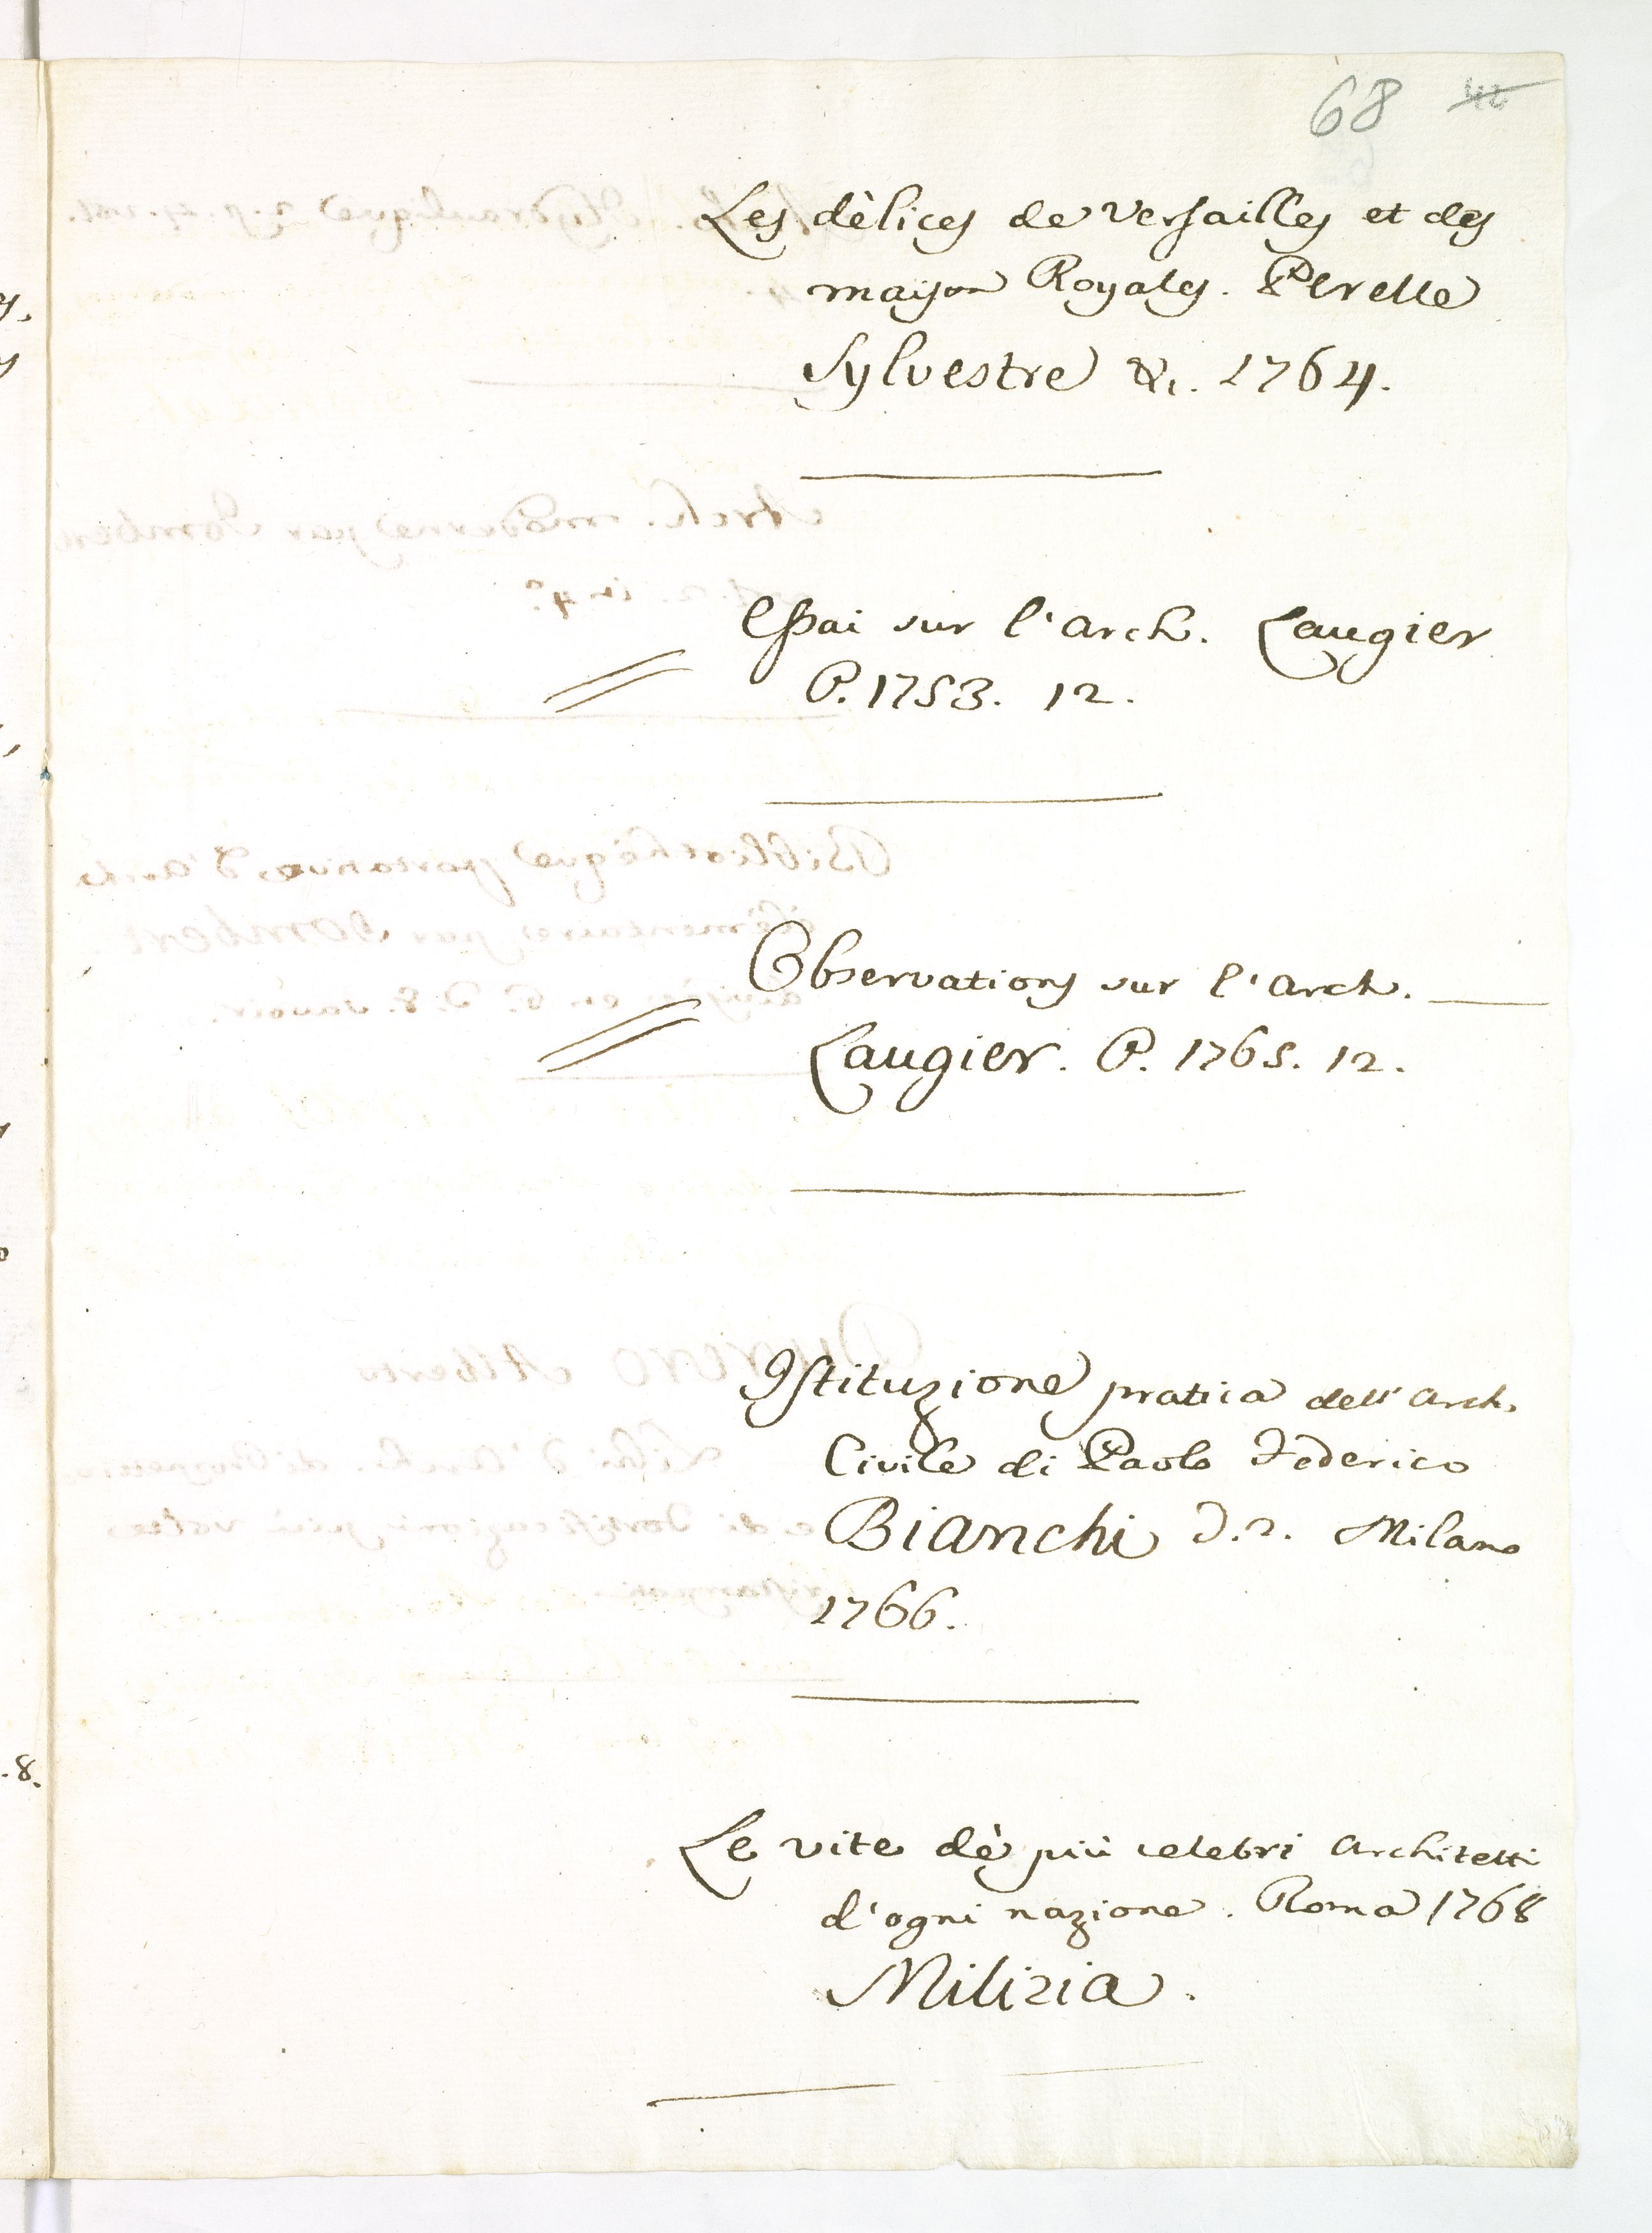 68 42
Les dèlices de Versailles et des
maison Royales. Perelle
Sylvestre &c. 1764.
Essai sur l'Arch. Laugier
P. 1753. 12.
Observations sur l'Arch.
Laugier. P. 1765. 12.
Istituzione pratica dell'Arch.
Civile di Paolo Federico
Bianchi T. 2. Milano
1766.
Le vite dè più celebri Architetti
d'ogni nazione. Roma 1768
Milizia.
.8.